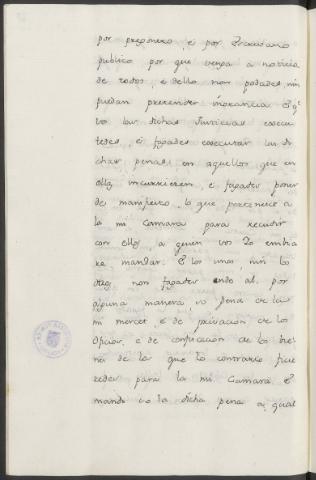 por pregonero, e por Escrivano
publico por que venga a noticia
de todos, e dello non podades, nin
puedan pretender inorancia E q.e
vos las dichas Justicias execu
tedes, e fagades executar las di
chas penas en aquellos que en
ellas incurrieren, e fagades poner
de manifiesto, lo que pertenece a
la mi Camara para recudir
con ellas, a quien vos Yo embia
re mandar. E los unos, nin los
otros non fagades ende al, por
alguna manera, so pena de la
mi merced, e de privacion de los
Oficios, e de confiscacion de los bie
nes de los que lo contrario ficie
redes para la mi Camara. E
mando so la dicha pena a qual